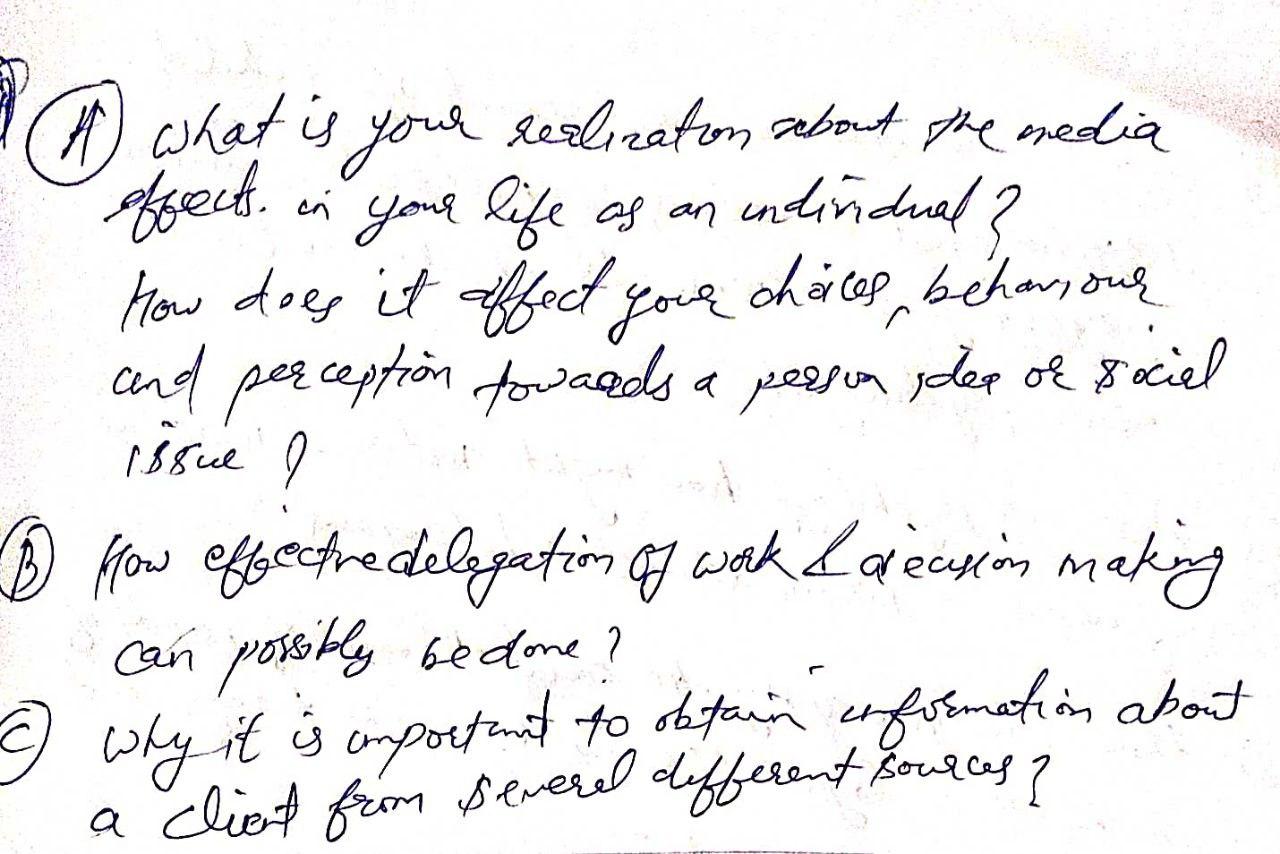 (A) What is your realization about the media
effects. in your life as an individual?
How does it affect your choices, behaviour
and perception towards a person, idea or social
issue?
(B) How effective delegation of work & decision making
can possibly be done?
(C) Why it is important to obtain information about
a client from several different sources?